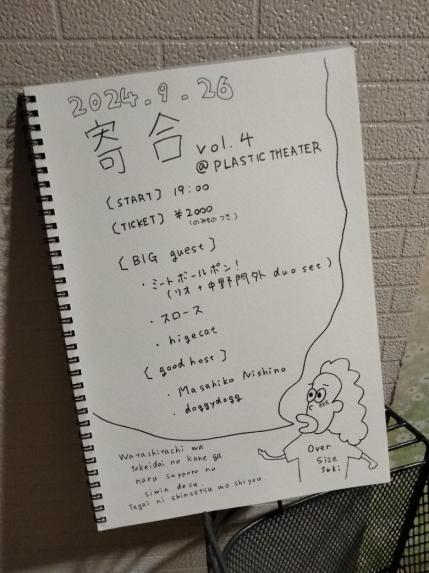 2024.9.26
寄合 vol.4
@ PLASTIC THEATER
[START] 19:00
[TICKET] ¥2000
(のみものつき)
[BIG guest]
・ミートボールポン!
(リオ+中野門外 duo set)
・スロース
・higecat
[good host]
・Masahiko Nishino
・doggydogg
Watashitachi wa
tokeidai no kane ga
naru sapporo no
simin desu.
Tagai ni shinsetsu wo shiyou.
Over
Size
Suki